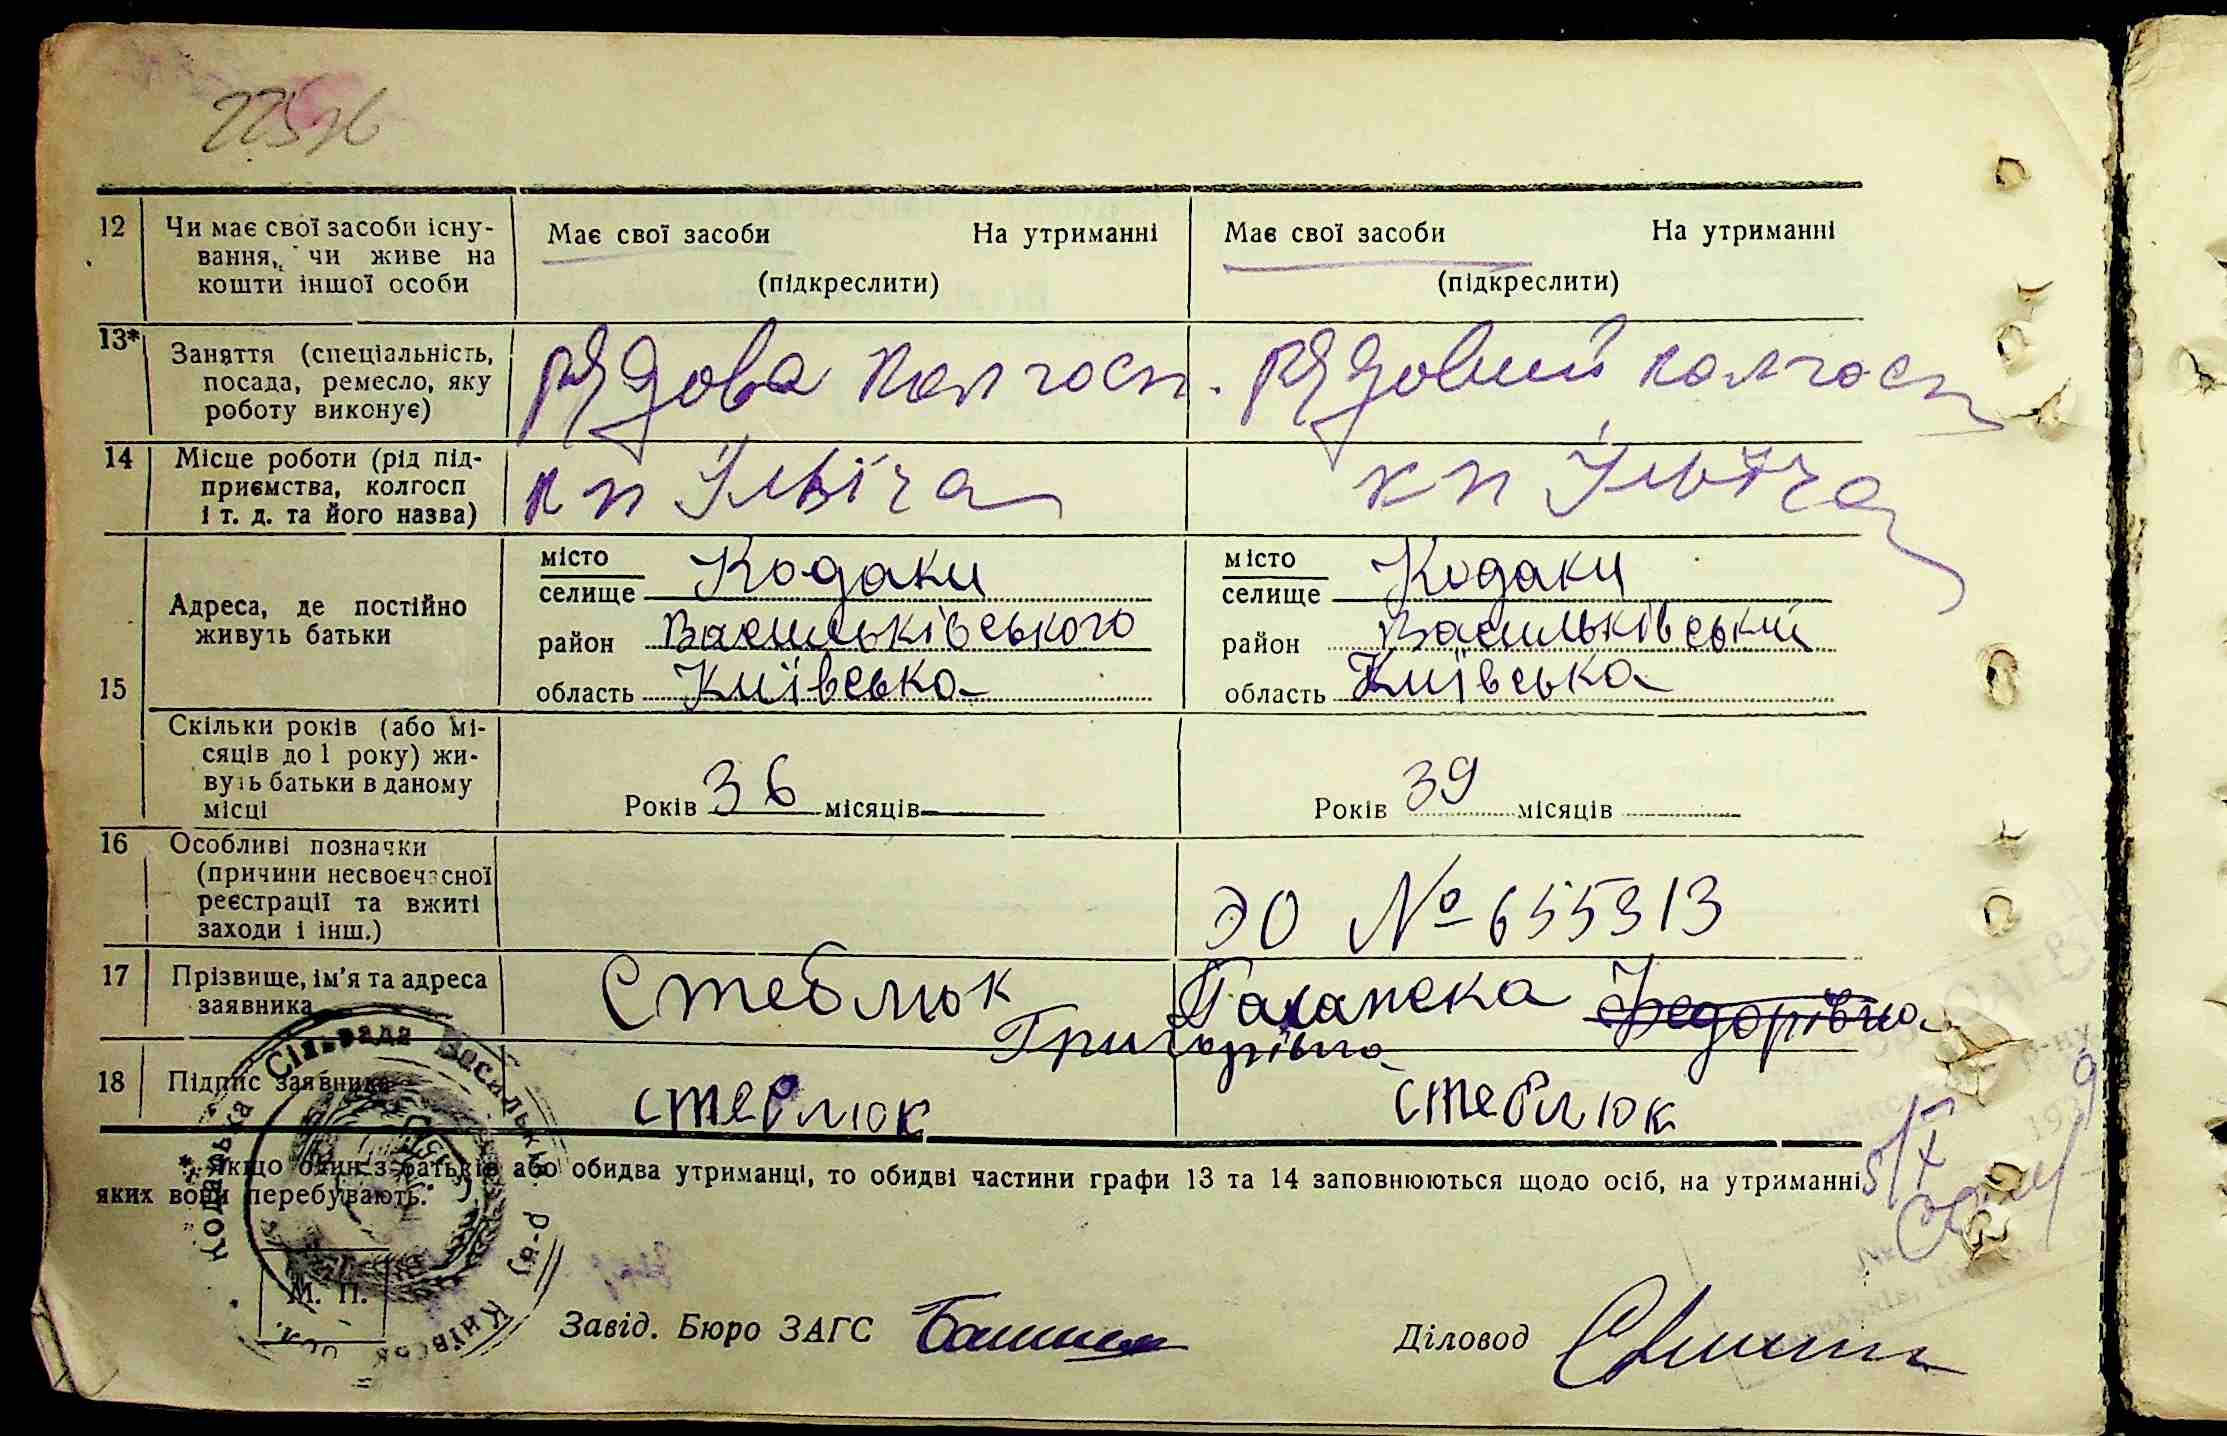 12 Чи має свої засоби існу-
вання, чи живе на
кошти іншої особи
Має свої засоби На утриманні
(підкреслити)
Має свої засоби На утриманні
(підкреслити)
13* Заняття (спеціальність,
посада, ремесло, яку
роботу виконує)
рядова колгосп.
рядовий колгосп
14 Місце роботи (рід під-
приємства, колгосп
і т. д. та його назва)
кп Ільїча
кп Ільїча
15 Адреса, де постійно
живуть батьки
місто
селище Кодаки
район Васильківського
область Київська
місто
селище Кодаки
район Васильківський
область Київська
Скільки років (або мі-
сяців до 1 року) жи-
вуть батьки в даному
місці
Років 36 місяців
Років 39 місяців
16 Особливі позначки
(причини несвоєчасної
реєстрації та вжиті
заходи і інш.)
ЭО № 655313
17 Прізвище, ім'я та адреса
заявника
Стеблюк Федорівна
Григорівна
18 Підпис заявника
стеблюк стеблюк
* Якщо один з батьків або обидва утриманці, то обидві частини графи 13 та 14 заповнюються щодо осіб, на утриманні
яких вони перебувають.
Кодацька Сільрада Васильків. р-ну Київськ. обл.
М. П.
5/X
Завід. Бюро ЗАГС
Діловод